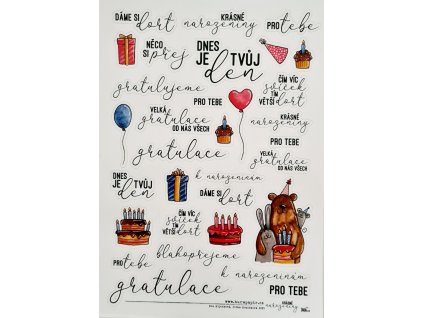 DÁME SI dort
KRÁSNÉ narozeniny
PRO tebe
NĚCO SI přej
DNES JE TVŮJ den
gratulujeme
PRO TEBE
ČÍM VÍC svíček
TÍM VĚTŠÍ dort
VELKÁ gratulace OD NÁS VŠECH
KRÁSNÉ narozeniny
gratulace
PRO TEBE
VELKÁ gratulace OD NÁS VŠECH
DNES JE TVŮJ den
k narozeninám
DÁME SI dort
ČÍM VÍC svíček
TÍM VĚTŠÍ dort
PRO tebe
blahopřejeme
k narozeninám
gratulace
PRO TEBE
KRÁSNÉ narozeniny